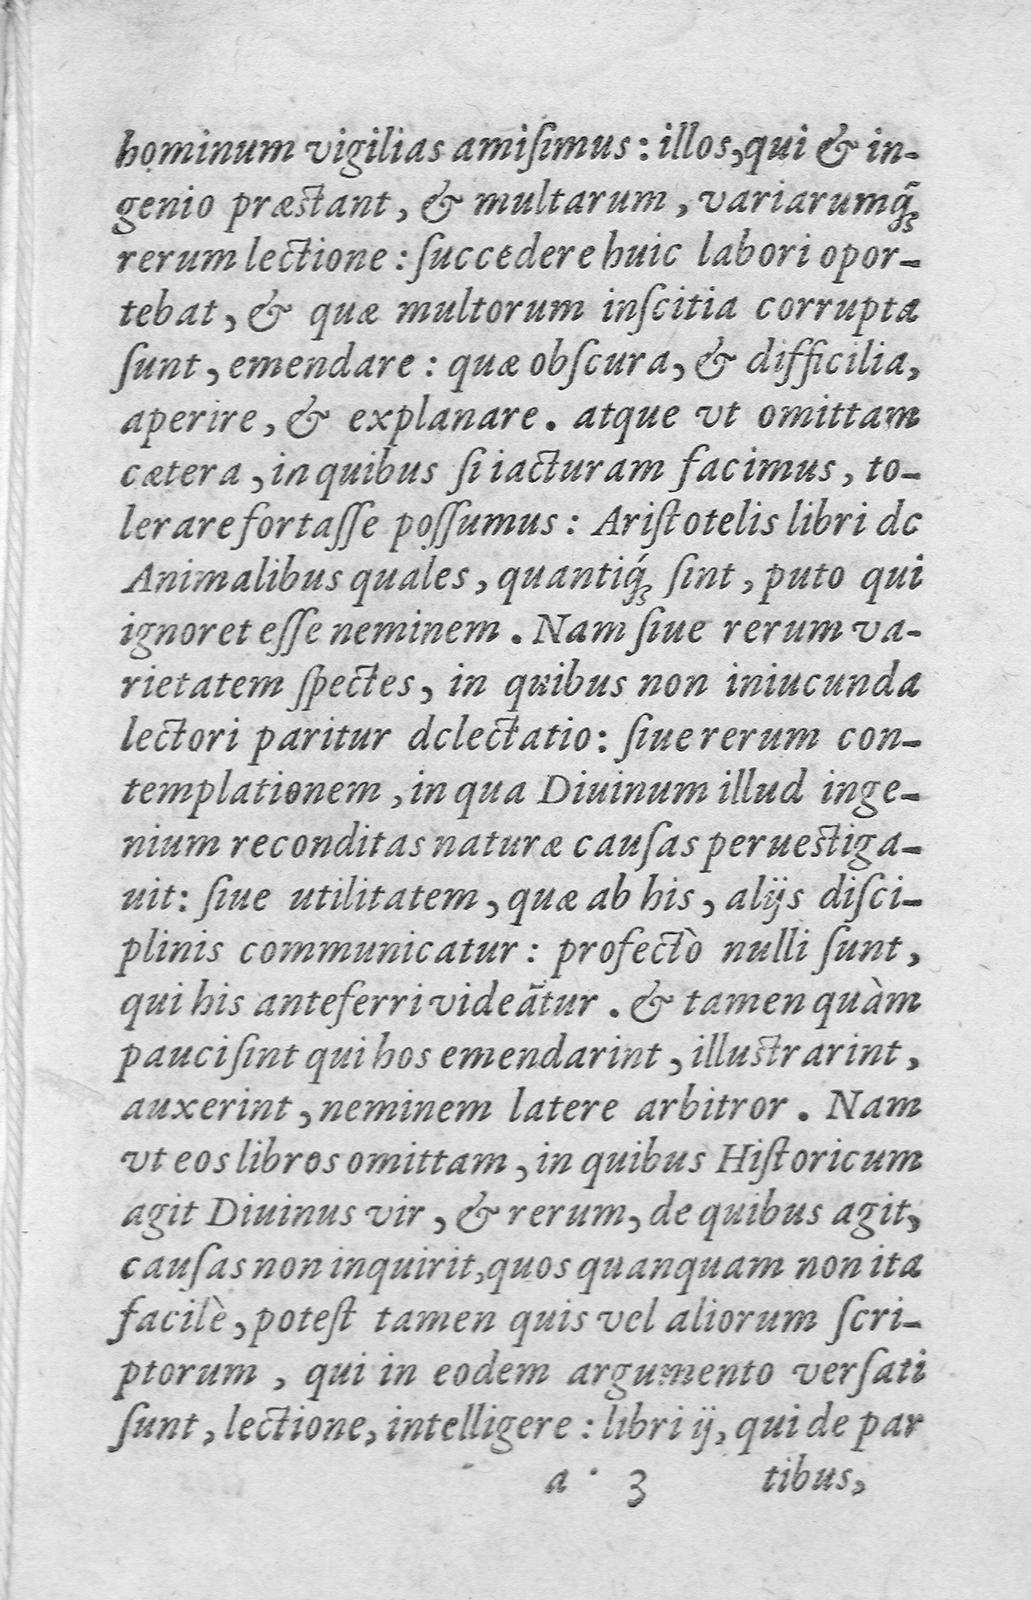 hominum vigilias amiſimus: illos, qui & in-
genio præſtant, & multarum, variarumq̃;
rerum lectione: ſuccedere huic labori opor-
tebat, & quæ multorum inſcitia corrupta
ſunt, emendare: quæ obſcura, & difficilia,
aperire, & explanare. atque vt omittam
cætera, in quibus ſi iacturam facimus, to-
lerare fortaſſe poſſumus: Ariſtotelis libri de
Animalibus quales, quantiq́; ſint, puto qui
ignoret eſſe neminem. Nam ſiue rerum va-
rietatem ſpectes, in quibus non iniucunda
lectori paritur delectatio: ſiue rerum con-
templationem, in qua Diuinum illud inge-
nium reconditas naturæ cauſas perueſtiga-
uit: ſiue utilitatem, quæ ab his, alijs diſci-
plinis communicatur: profectò nulli ſunt,
qui his anteferri videãtur. & tamen quàm
pauci ſint qui hos emendarint, illuſtrarint,
auxerint, neminem latere arbitror. Nam
vt eos libros omittam, in quibus Hiſtoricum
agit Diuinus vir, & rerum, de quibus agit,
cauſas non inquirit, quos quanquam non ita
facilè, poteſt tamen quis vel aliorum ſcri-
ptorum, qui in eodem argumento verſati
ſunt, lectione, intelligere: libri ij, qui de par
a 3 tibus,